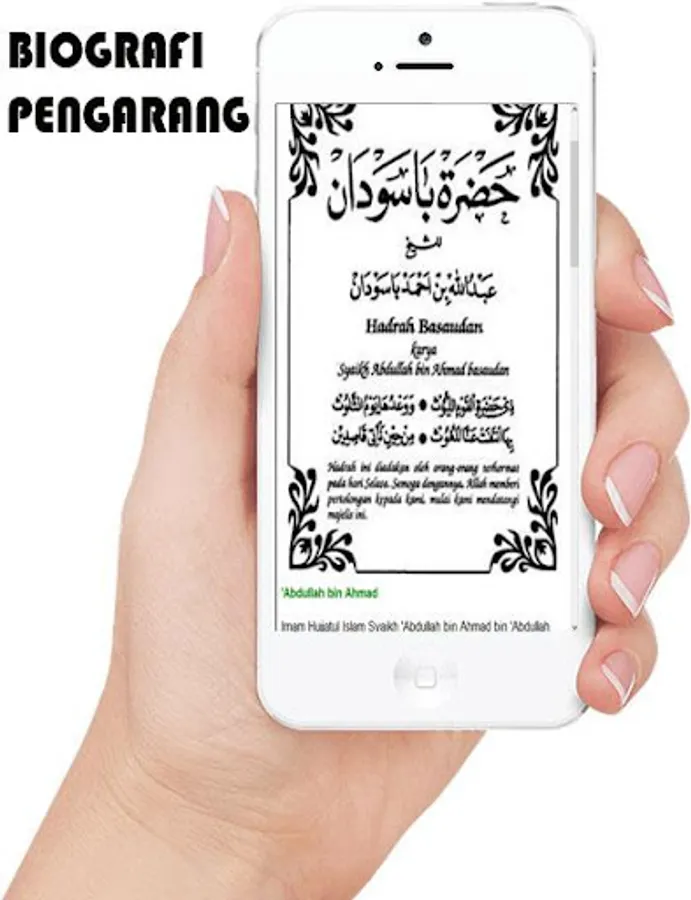 BIOGRAFI
PENGARANG
حَضْرَةْ بَاسَوْدَانْ
للشيخ
عَبْدُاللهْ بِنْ اَحْمَدْ بَاسَوْدَانْ
Hadrah Basaudan
karya
Syaikh Abdullah bin Ahmad basaudan
ذِى حَضْرَةِ الْقَوْمِ اللُّيُوْثْ • وَوَعْدُهَا يَوْمُ الثَّلُوْثْ
بِهَا انْتَفَتْ عَنَّا اللُّكُوْثْ • مِنْ حِيْنِ نَأْتِى قَاصِدِيْنْ
Hadrah ini diadakan oleh orang-orang terhormat
pada hari Selasa. Semoga dengannya, Allah memberi
pertolongan kepada kami, mulai kami mendatangi
majelis ini.
'Abdullah bin Ahmad
Imam Hujjatul Islam Syaikh 'Abdullah bin Ahmad bin 'Abdullah